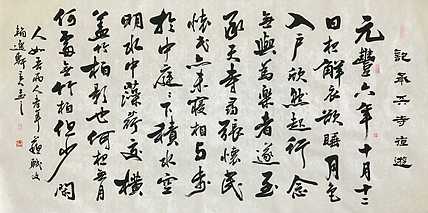 記承天寺夜遊
元豐六年十月十二
日夜解衣欲睡月色
入戶欣然起行念
無與為樂者遂至
承天寺尋張懷民
懷民亦未寢相與步
於中庭下積水空
明水中藻荇交橫
蓋竹柏影也何夜無月
何處無竹柏但少閒
人如吾兩人者耳 蘇軾文